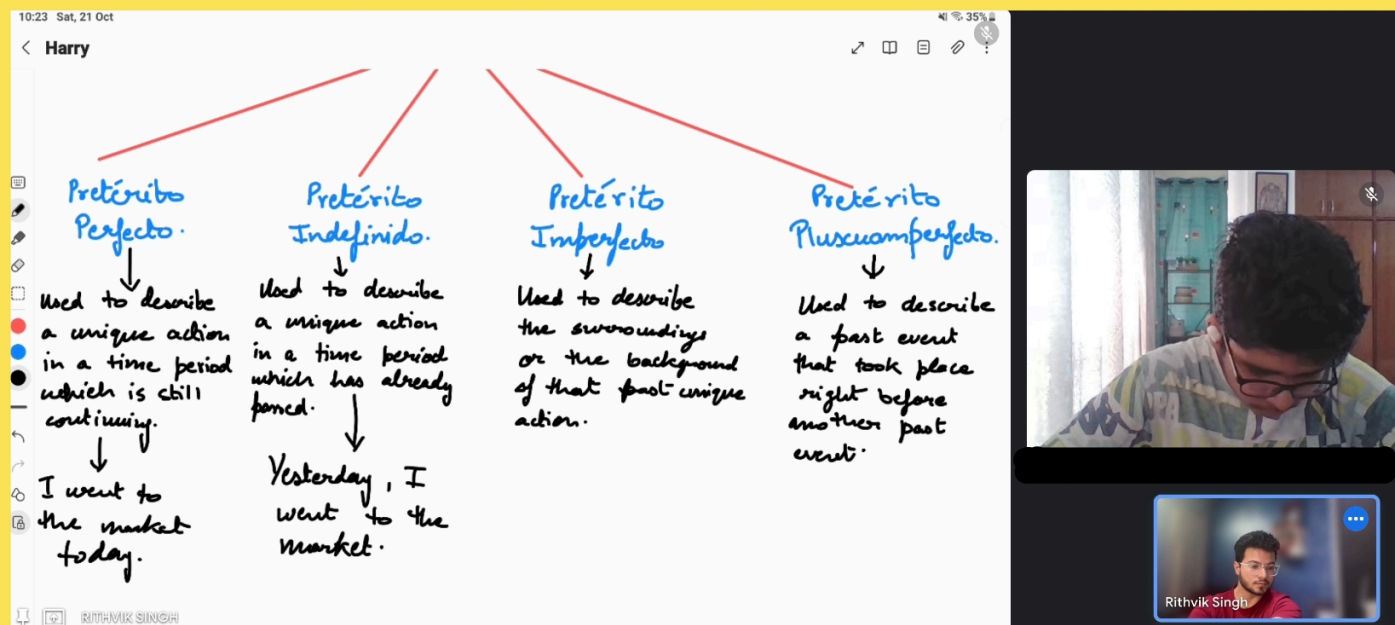 10:23 Sat, 21 Oct
35%
Harry
Pretérito
Perfecto.
Used to describe
a unique action
in a time period
which is still
continuing.
I went to
the market
today.
Pretérito
Indefinido.
Used to describe
a unique action
in a time period
which has already
passed.
Yesterday, I
went to the
market.
Pretérito
Imperfecto
Used to describe
the surroundings
or the background
of that past unique
action.
Pretérito
Pluscuamperfecto.
Used to describe
a past event
that took place
right before
another past
event.
RITHVIK SINGH
Rithvik Singh